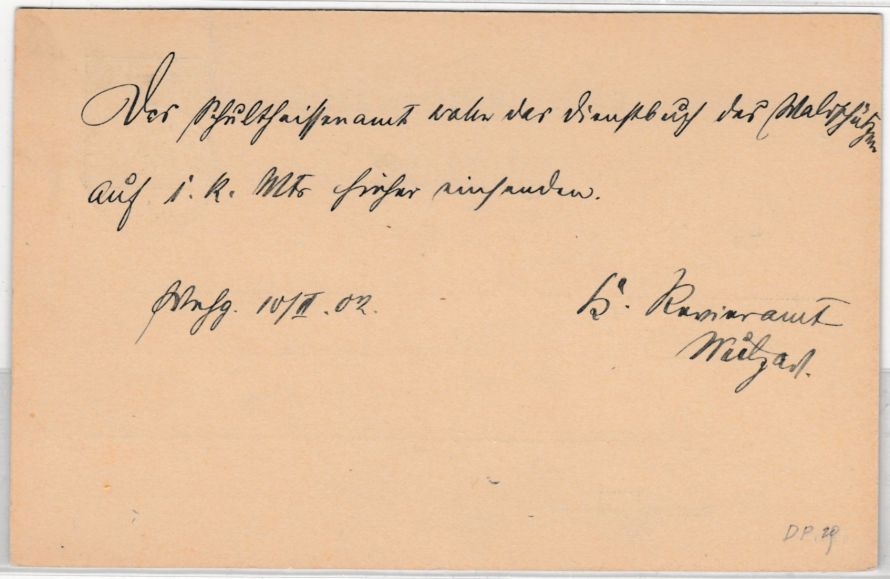 Das Schultheissenamt wolle das Dienstbuch des Waldschützen
auf i. K. Mts hieher einsenden.
10/II. 02. K. Revieramt
D.P. 29